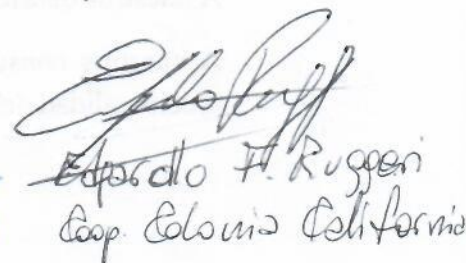 Eduardo F. Ruggeri
Coop. Colonia California